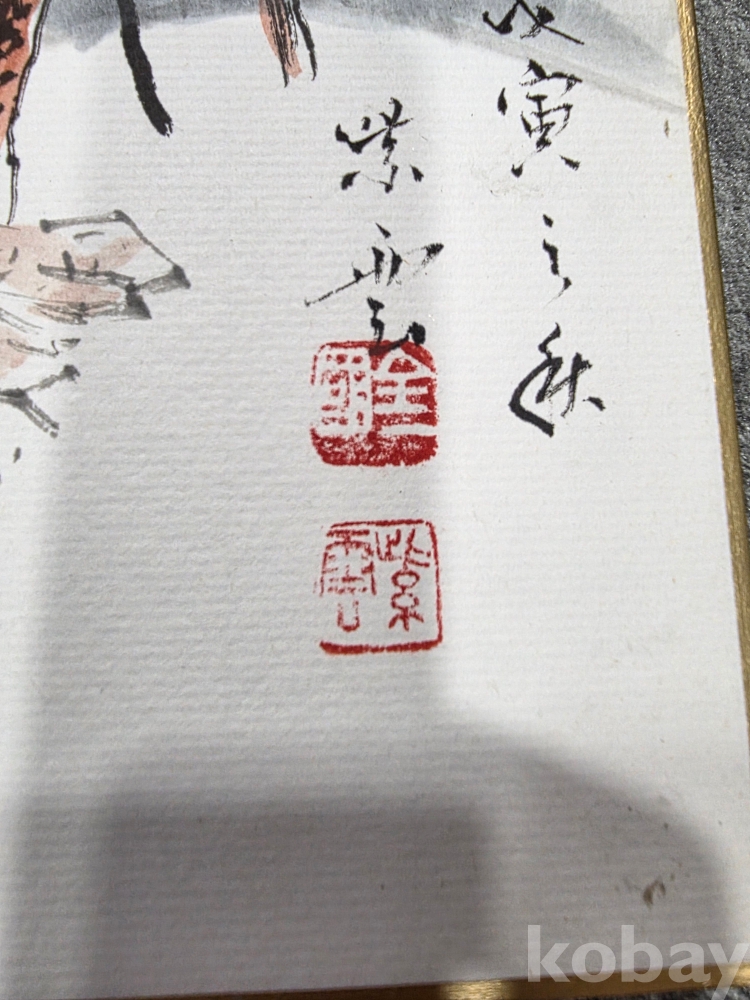 戊寅之秋
紫雲
紫雲
kobay